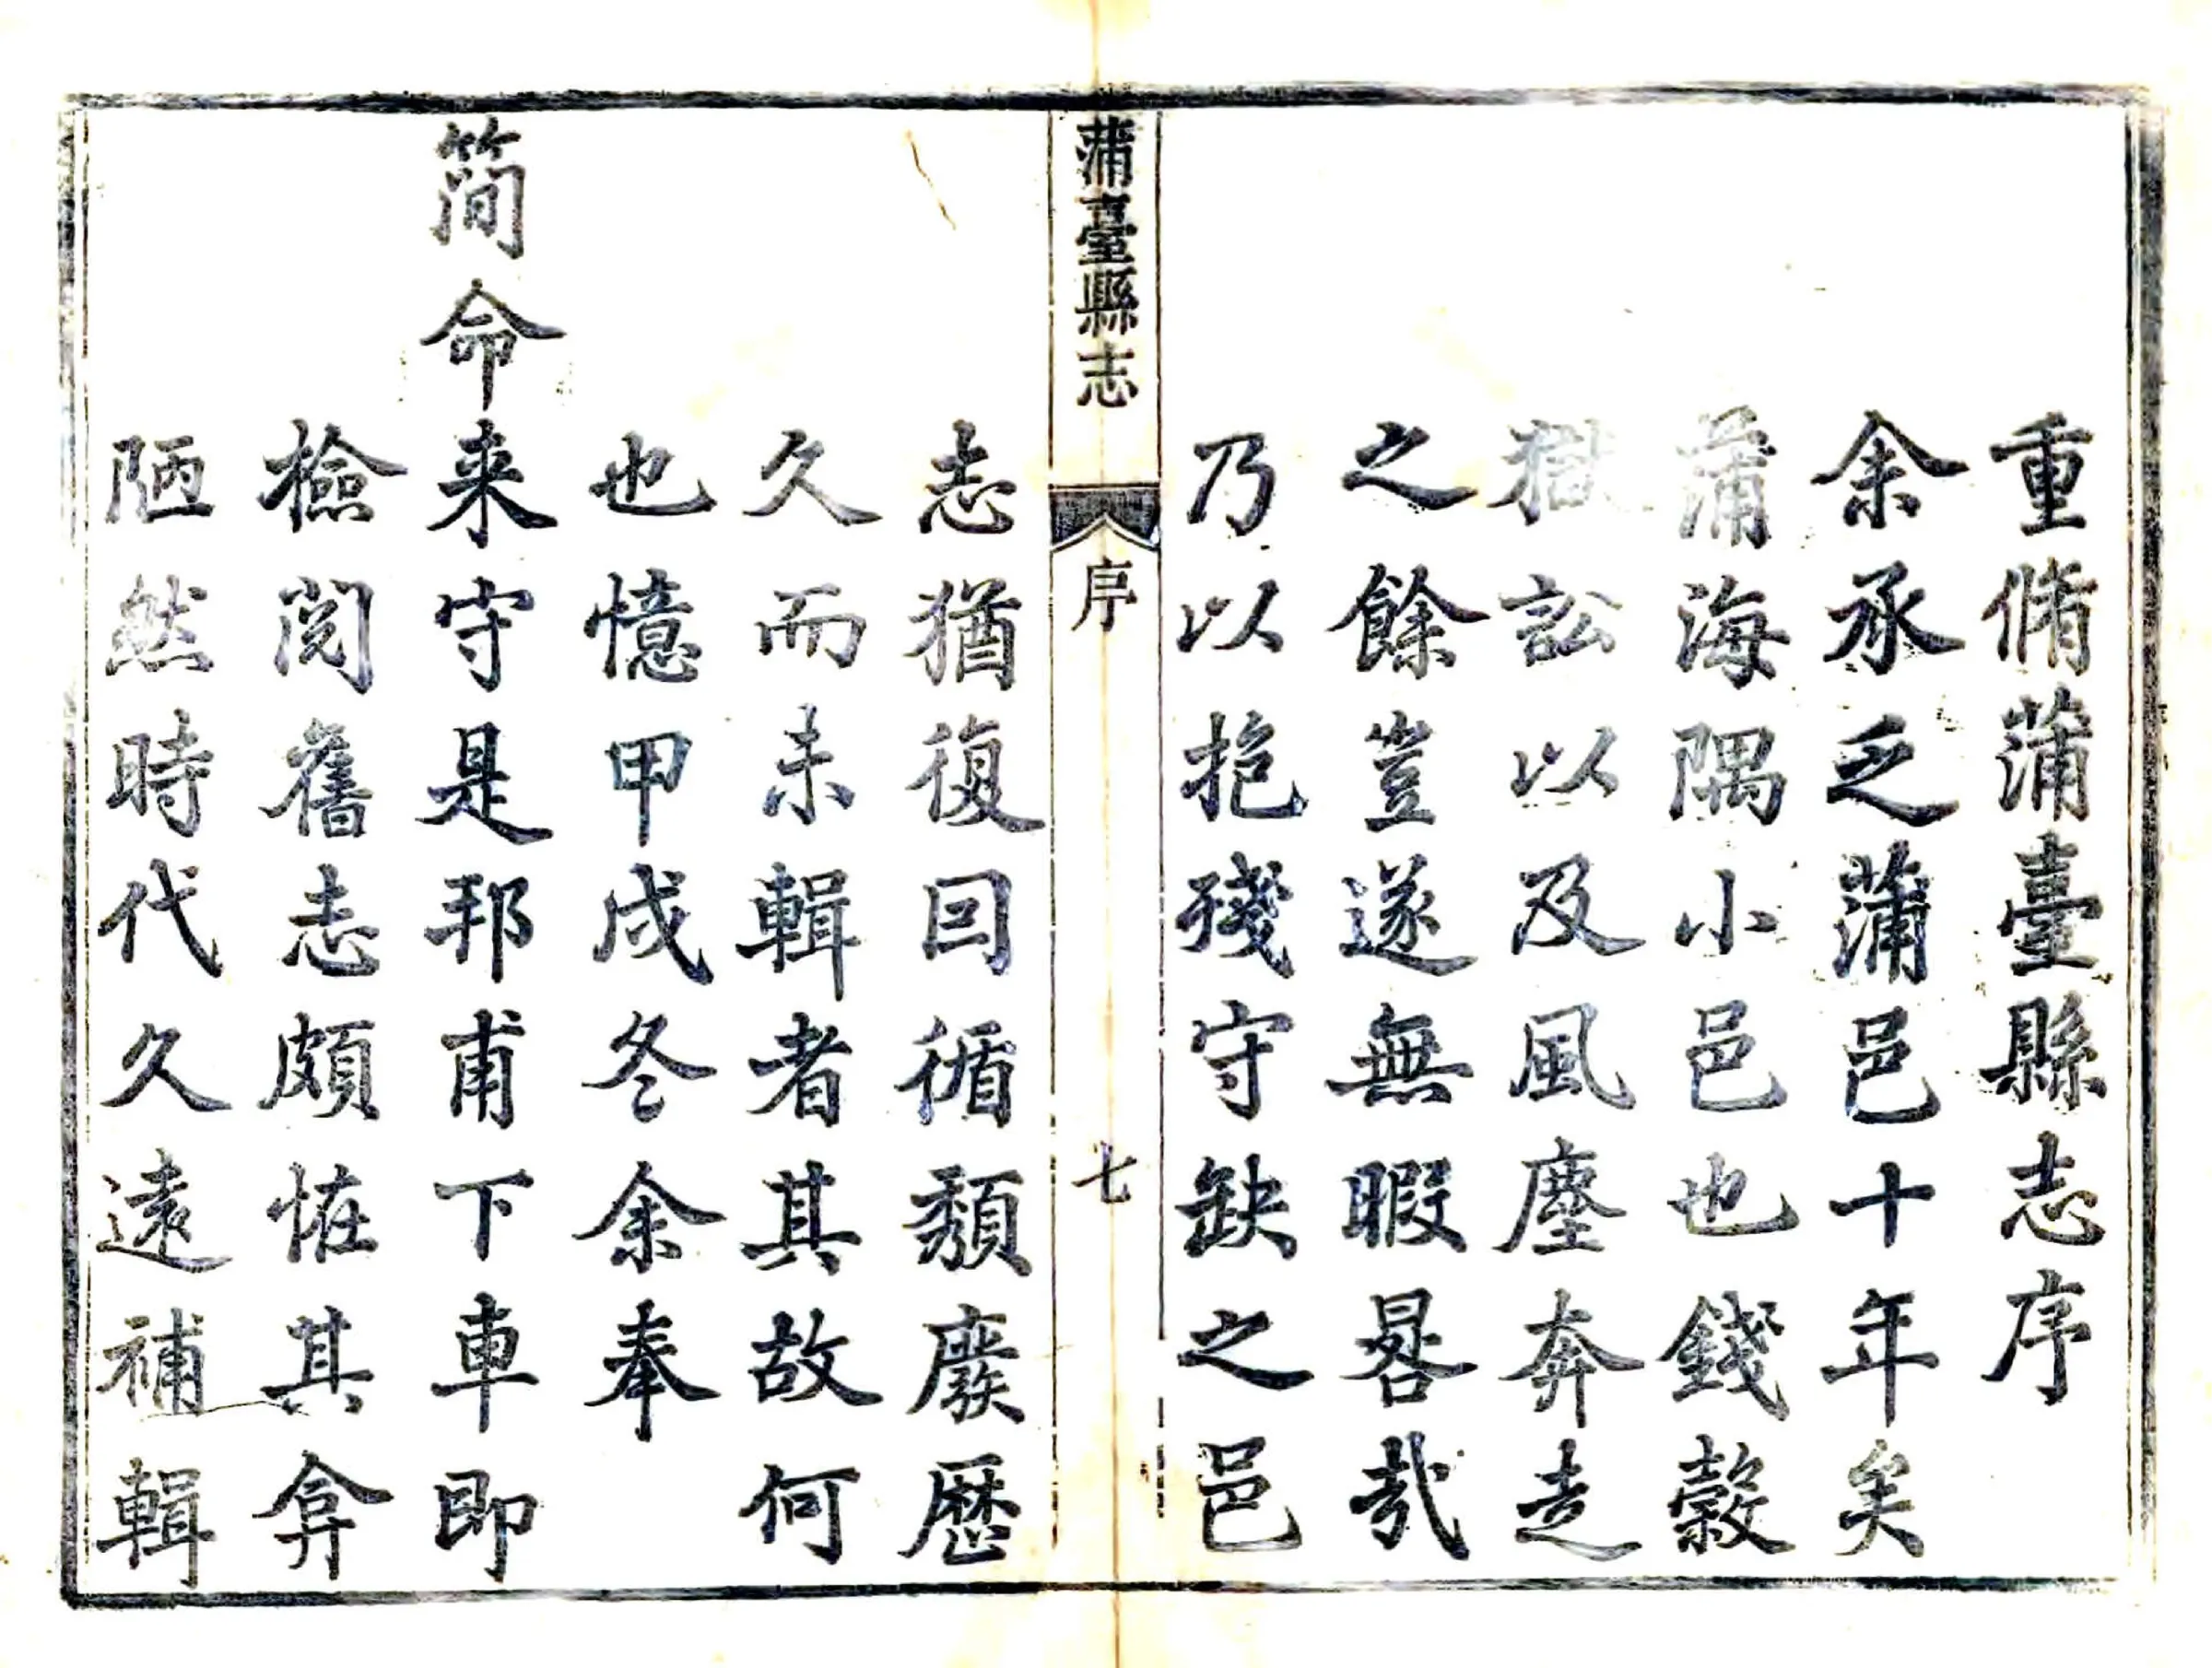 重脩蒲臺縣志序
余承乏蒲邑十年矣
蒲海隅小邑也錢穀
獄訟以及風塵奔走
之餘豈遂無暇晷㢤
乃以抱殘守缺之邑
蒲臺縣志
序
七
志猶復因循頹廢歷
久而未輯者其故何
也憶甲戌冬余奉
簡命来守是邦甫下車即
檢閱舊志頗恠其弇
陋然時代久遠補輯